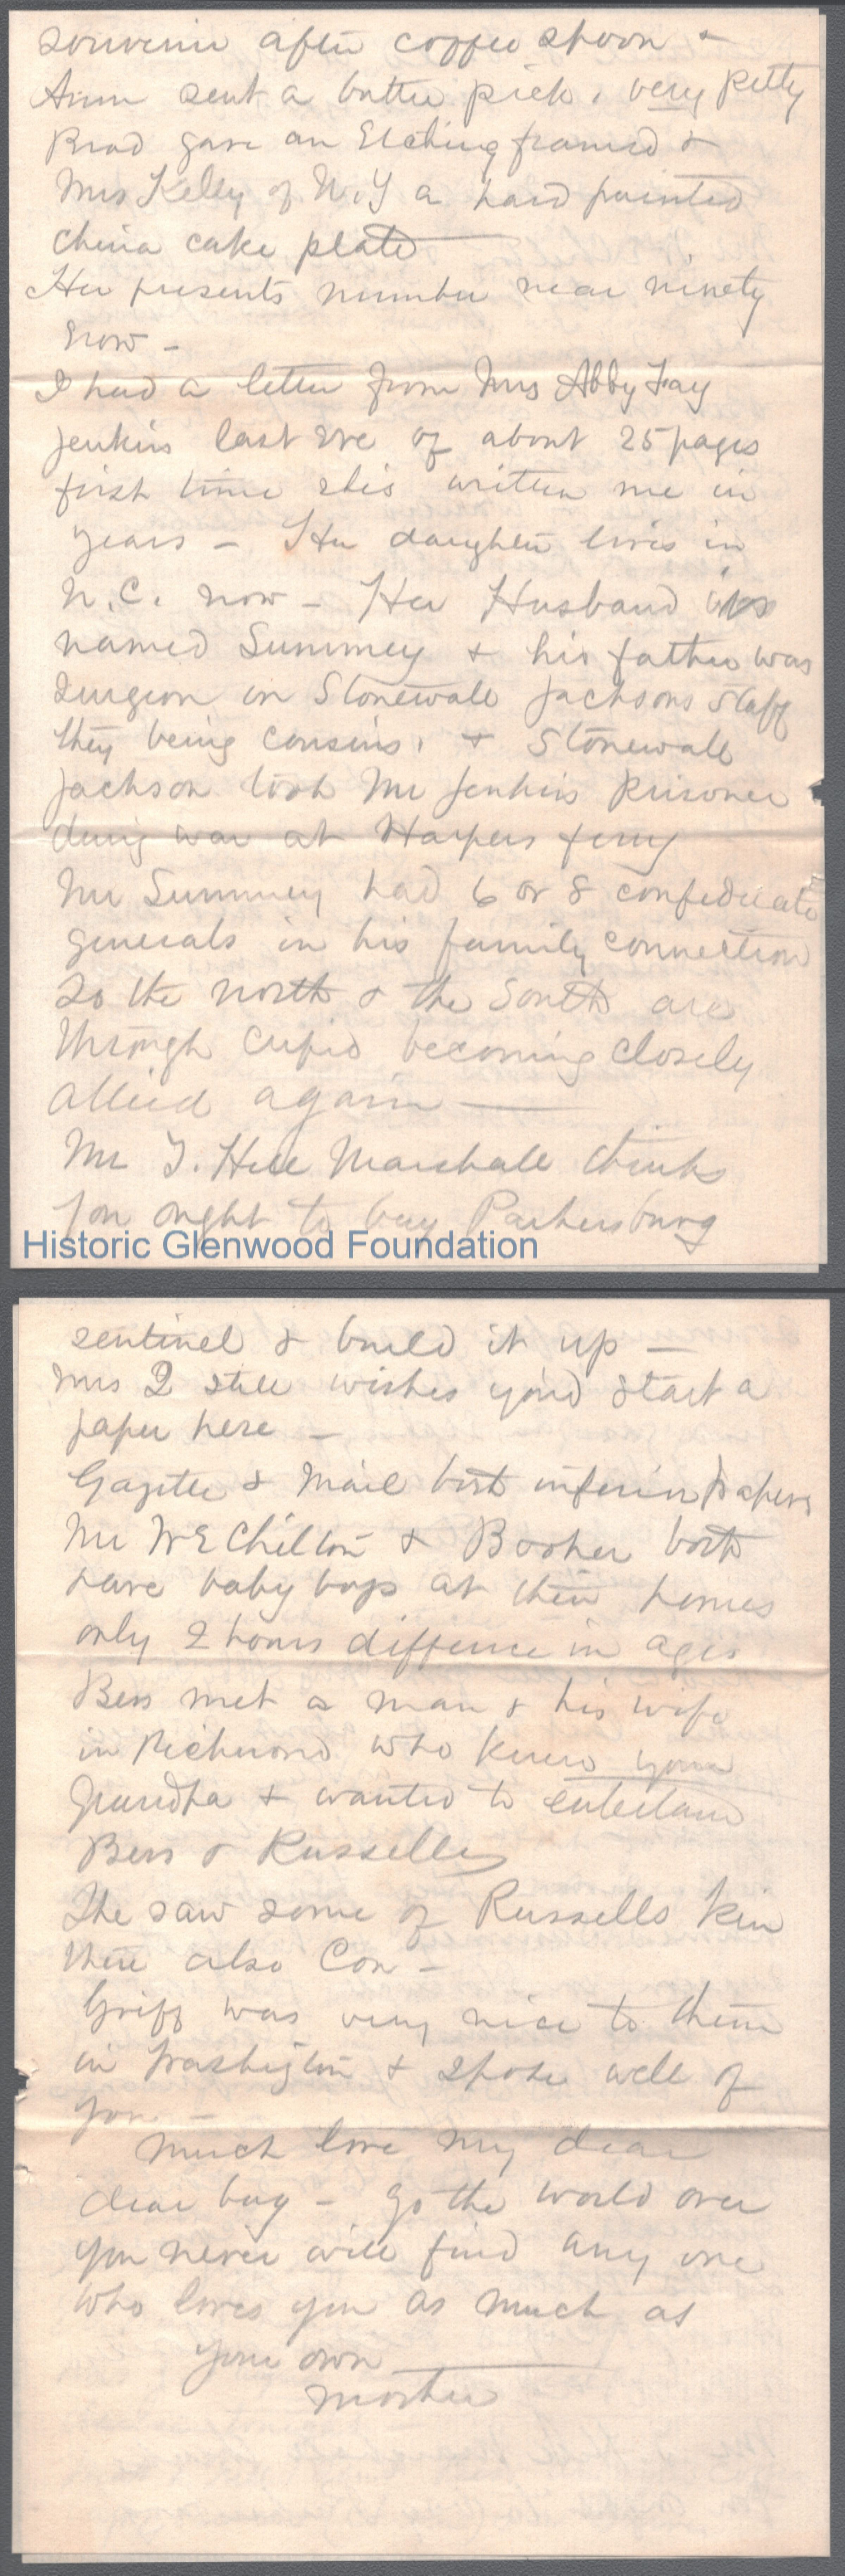 souvenir after coffee spoon &
Ann sent a butter pick, very pretty
Brad gave an Etching framed &
Mrs Kelly of N.Y a hand painted
china cake plate
Her presents number near ninety
now -
I had a letter from Mrs Abby Fay
Jenkins last eve of about 25 pages
first time shes written me in
years - Her daughter lives in
N.C. now - Her Husband is
named Summey & his father was
surgeon in Stonewall Jacksons staff
they being cousins, & Stonewall
Jackson took Mr Jenkins prisoner
during war at Harpers ferry
Mr Summey had 6 or 8 confederate
generals in his family connection
So the north & the South are
through Cupid becoming closely
allied again
Mr T. Hill Marshall thinks
you ought to buy Parkersburg
Historic Glenwood Foundation
sentinel & build it up -
Mrs Q still wishes you'd start a
paper here -
Gazette & Mail both inferior papers
Mr W E Chilton & Booker both
have baby boys at their homes
only 2 hours difference in ages
Bess met a man & his wife
in Richmond who knew your
Grandpa & wanted to entertain
Bess & Russell
She saw some of Russells kin
there also Con -
Griff was very nice to them
in Washington & spoke well of
you -
Much love my dear
dear boy - go the world over
you never will find any one
who loves you as much as
your own
mother